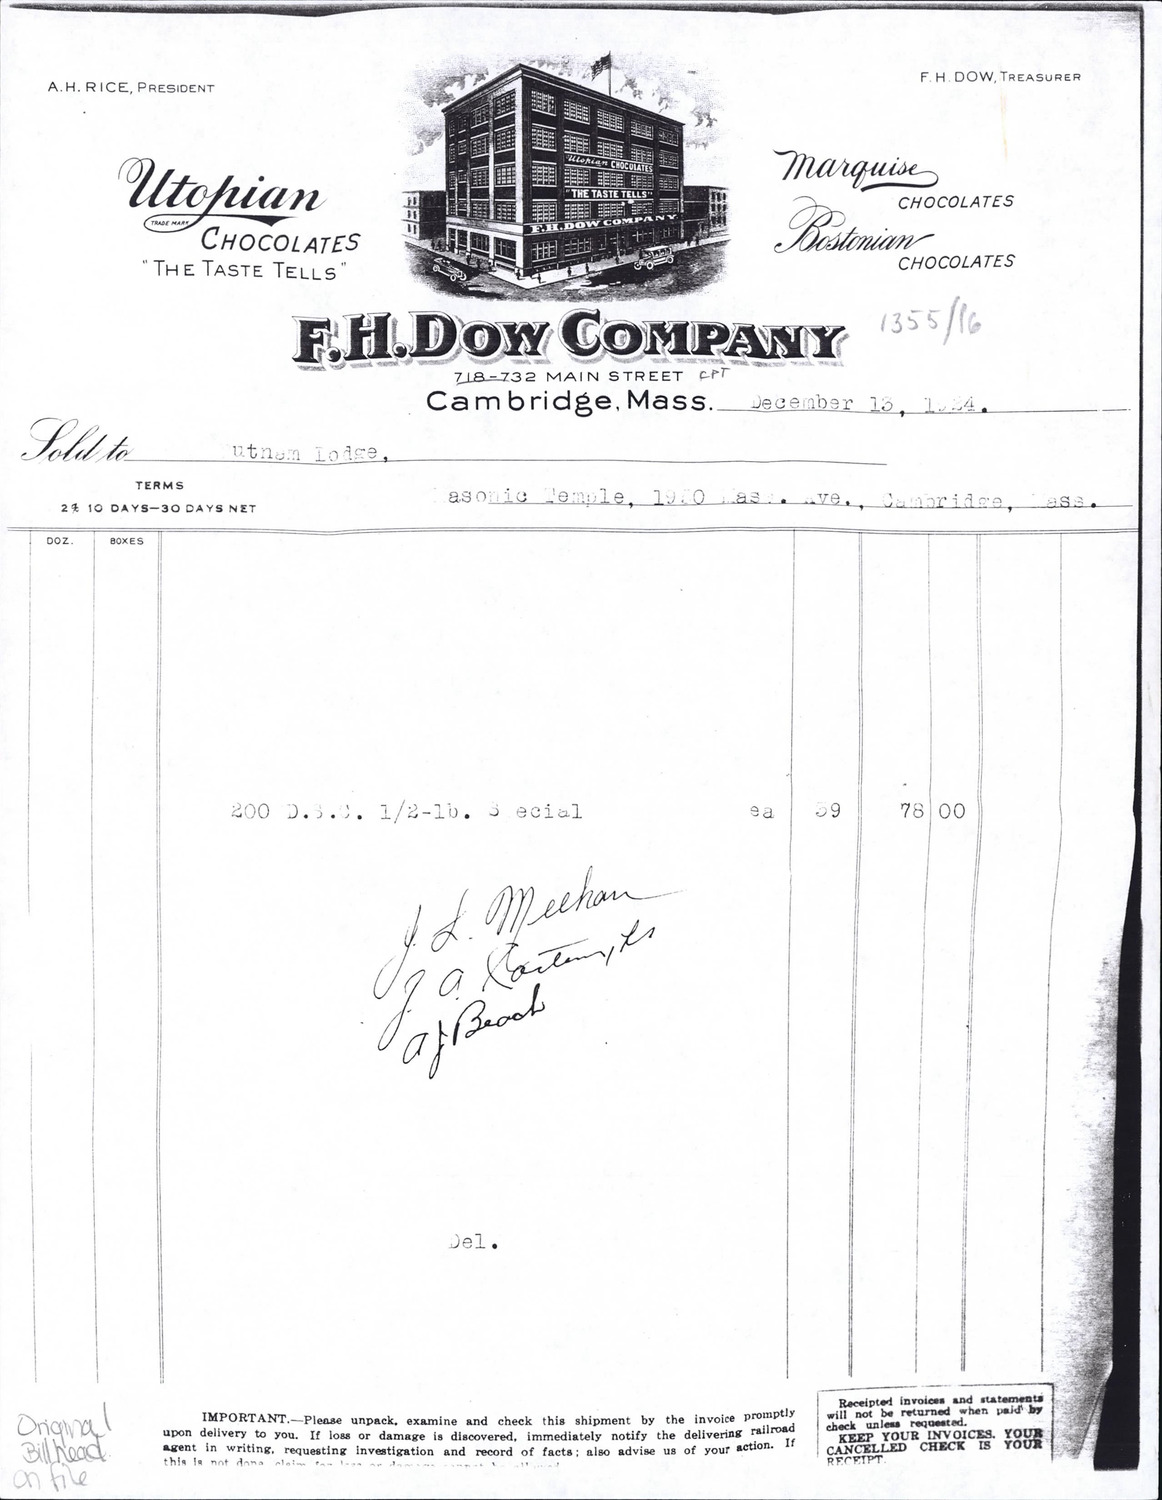 A.H. RICE, PRESIDENT
F.H. DOW, TREASURER
Utopian
TRADE MARK
CHOCOLATES
"THE TASTE TELLS"
Utopian CHOCOLATES
"THE TASTE TELLS"
F.H. DOW COMPANY
Marquise
CHOCOLATES
Bostonian
CHOCOLATES
F.H. DOW COMPANY
1355/16
718-732 MAIN STREET CPT
Cambridge, Mass. December 13, 1924.
Sold to utnam Lodge,
TERMS
2% 10 DAYS-30 DAYS NET
asonic Temple, 1950 Mass. Ave., Cambridge, ass.
DOZ. BOXES
200 D.S.C. 1/2-lb. S ecial ea 39 78 00
J. L. Meehan
J. A.
A J Beach
Del.
IMPORTANT.—Please unpack, examine and check this shipment by the invoice promptly
upon delivery to you. If loss or damage is discovered, immediately notify the delivering railroad
agent in writing, requesting investigation and record of facts; also advise us of your action. If
this is not done, claim for loss or damage cannot be allowed.
Receipted invoices and statements
will not be returned when paid by
check unless requested.
KEEP YOUR INVOICES. YOUR
CANCELLED CHECK IS YOUR
RECEIPT.
Original
Billhead
on file